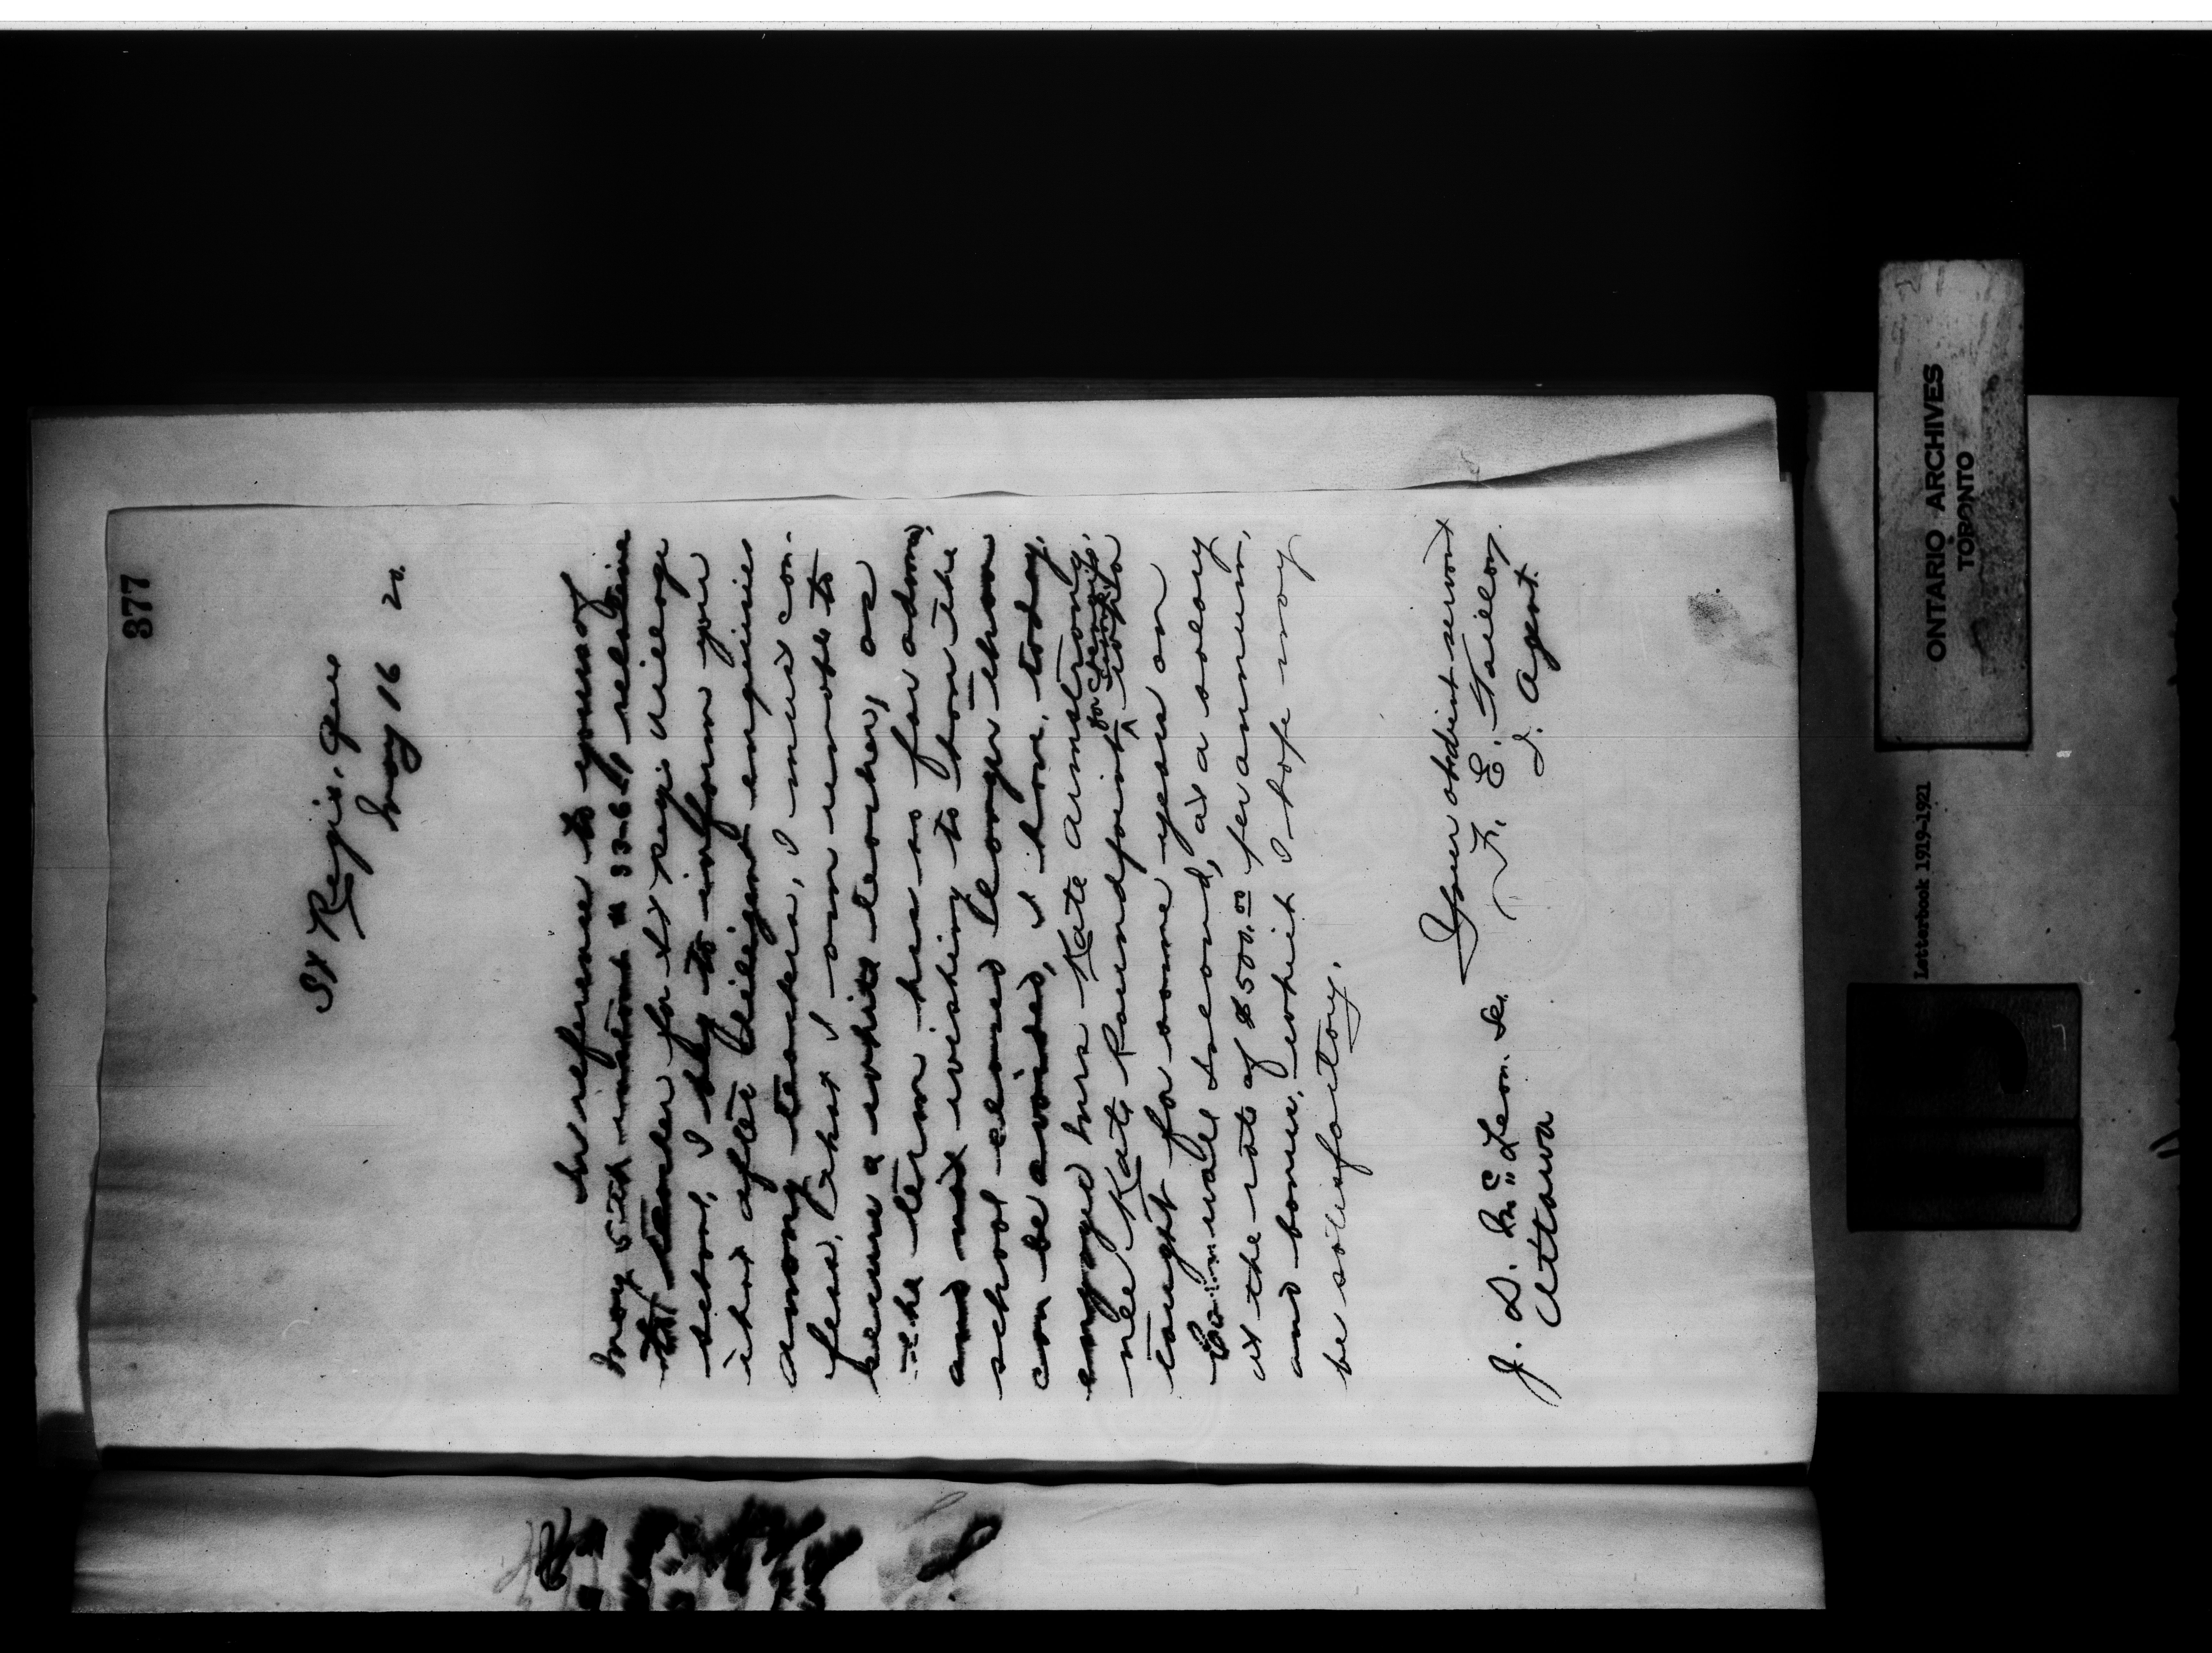 377
St Regis, Que
May 16 20.
In reference to yours of
May 5th instant # 33-6, relative
to teacher for St Regis Village
school, I beg to inform you
that after diligent enquiries
among teachers, I must con-
fess, that I am unable to
secure a white teacher, as
the term has so far advanced,
and not wishing to have the
school closed longer than
can be avoided, I have, today,
engaged Miss Kate Armstrong,
nee Kate Roundpoint, who
taught for some years on
Cornwall Island, at a salary
at the rate of $500.00 per annum,
and bonus, which I hope may
be satisfactory.
Your obedient servant
F. E. Taillon,
I. Agent.
J. D. McLean. Se.
Ottawa
ONTARIO ARCHIVES
TORONTO
Letterbook 1919-1921